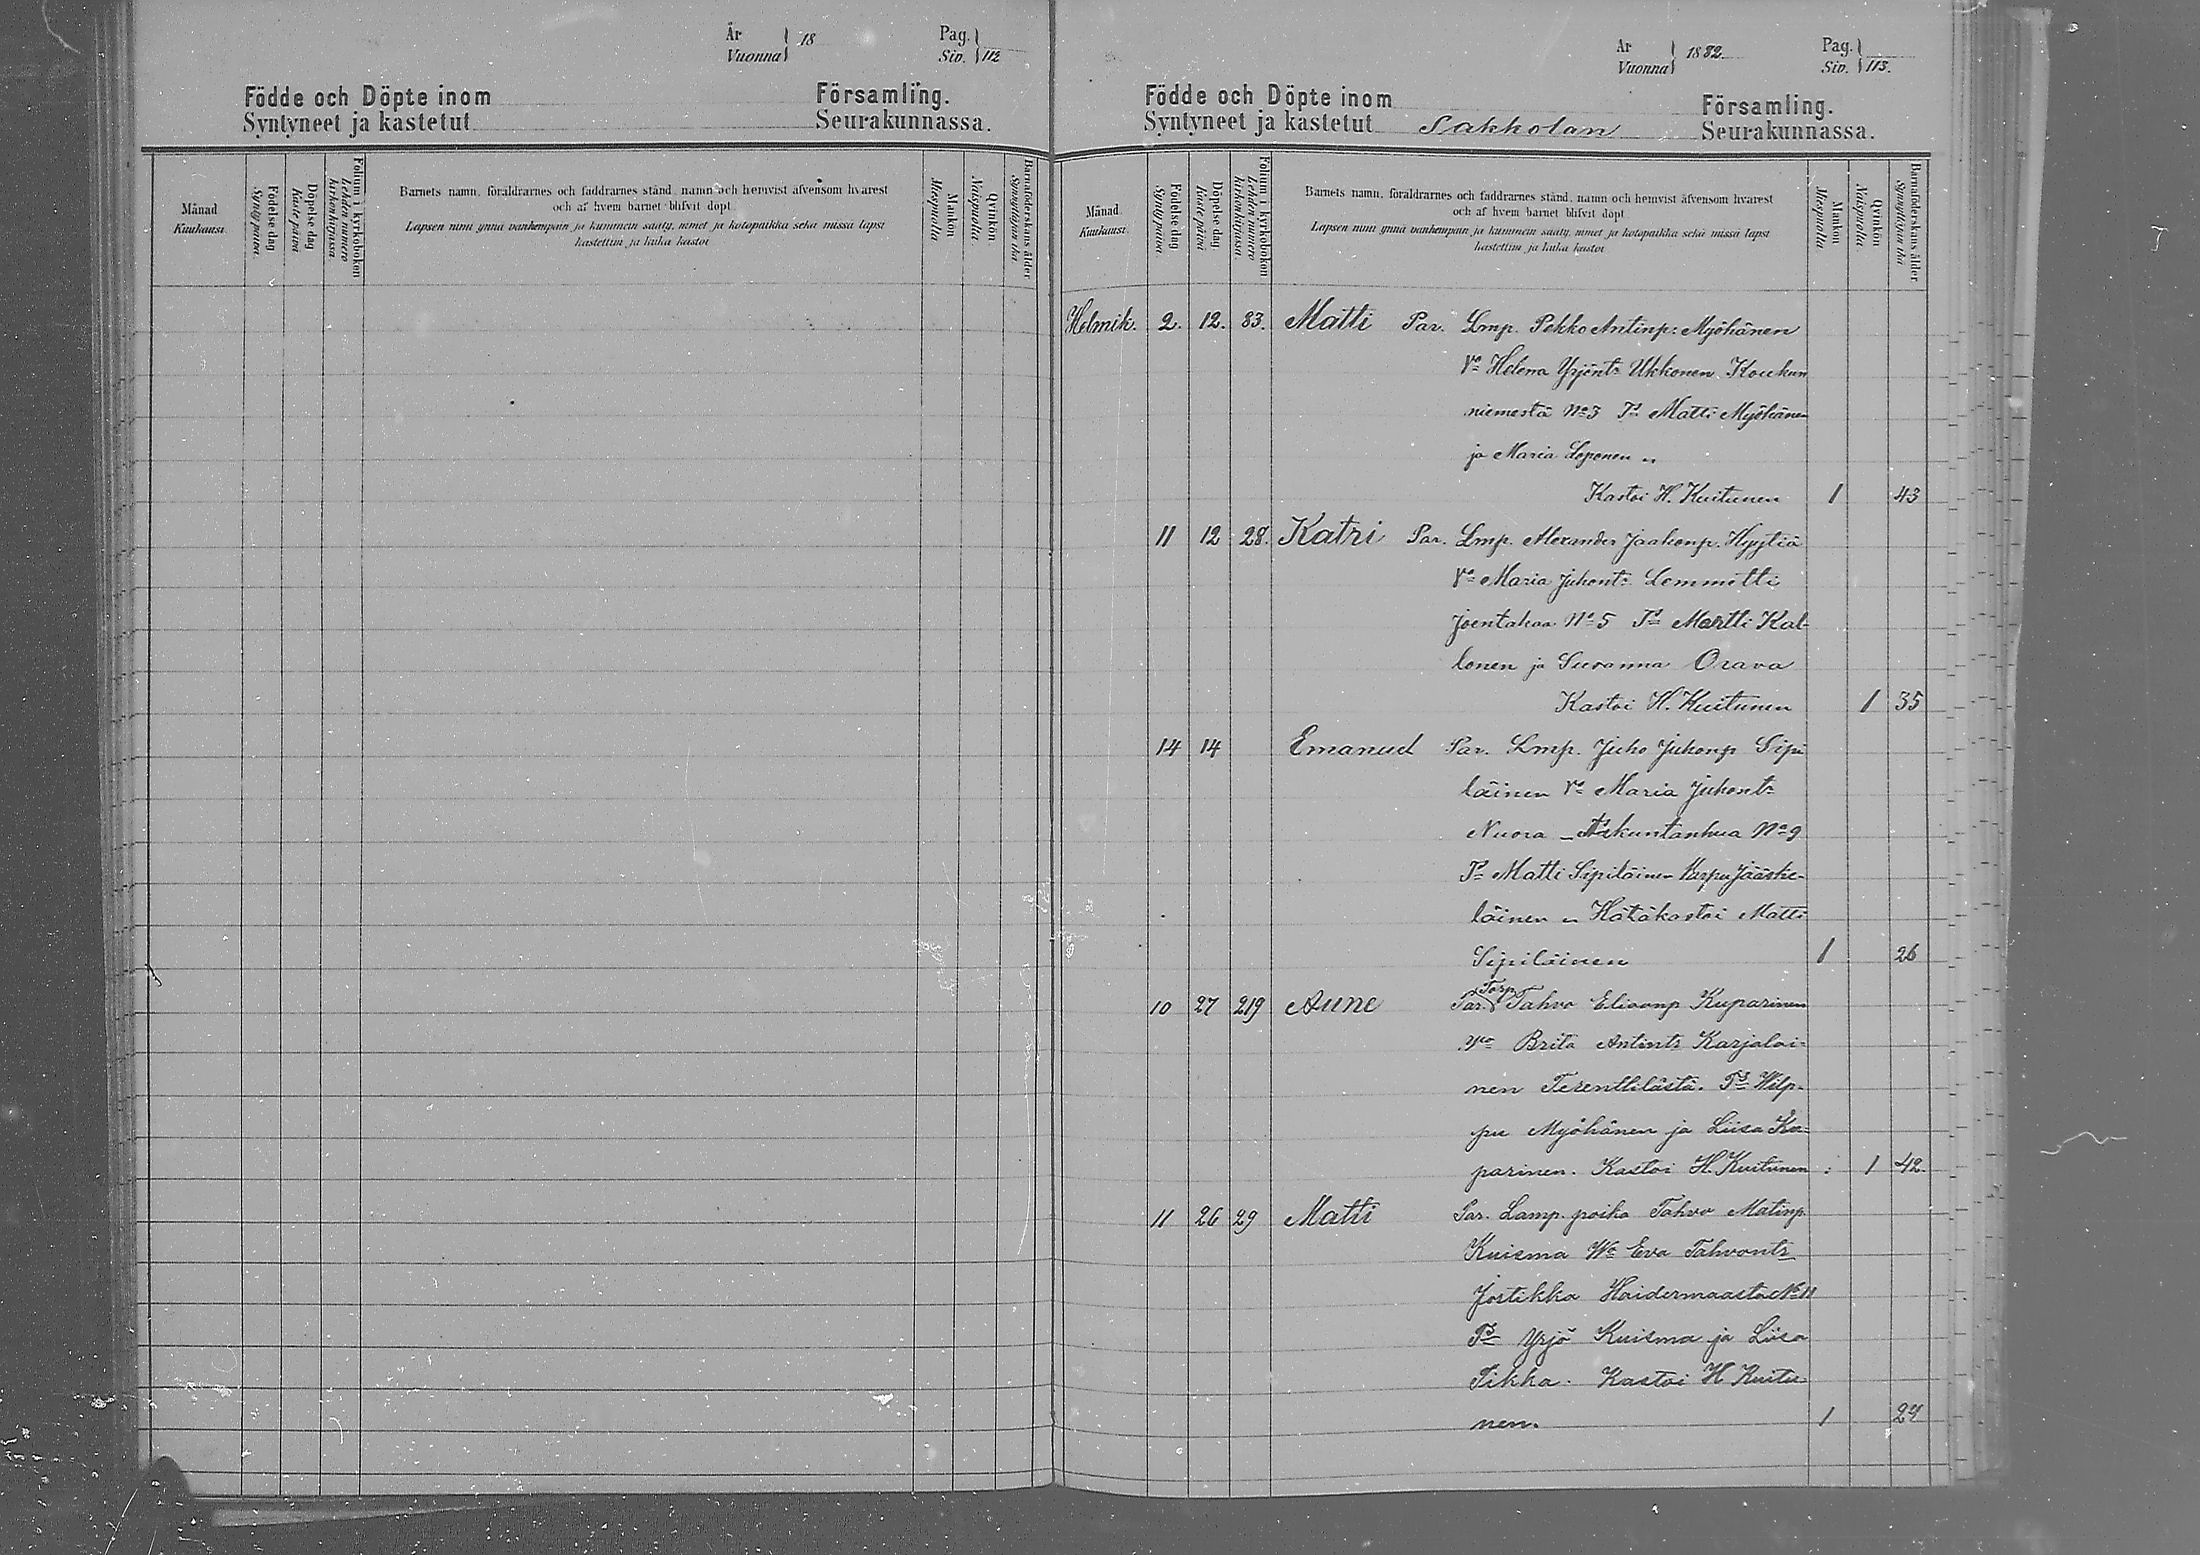 År Vuonna } 18 Pag. Siv. } 112
Födde och Döpte inom Församling.
Syntyneet ja kastetut Seurakunnassa.
Månad Kuukausi.
Födelse dag Syntypäivä.
Döpelse dag Kastepäivä
Folium i kyrkoboken Lehden numero kirkonkirjassa.
Barnets namn, föräldrarnes och faddrarnes stånd, namn och hemvist äfvensom hvarest
och af hvem barnet blifvit döpt
Lapsen nimi ynnä vanhempain ja kummein sääty, nimet ja kotopaikka sekä missä lapsi
kastettiin ja kuka kastoi
Mankön Miespuolia
Qvinkön Naispuolia.
Barnaföderskans ålder Synnyttäjän ikä
År Vuonna } 1882. Pag. Siv. } 113.
Födde och Döpte inom Församling.
Syntyneet ja kastetut Sakkolan Seurakunnassa.
Månad. Kuukausi.
Födelse dag Syntypäivä
Döpelse dag. Kastepäivä
Folium i kyrkoboken Lehden numero kirkonkirjassa.
Barnets namn, föräldrarnes och faddrarnes stånd, namn och hemvist äfvensom hvarest
och af hvem barnet blifvit döpt
Lapsen nimi ynnä vanhempain ja kummein sääty, nimet ja kotopaikka sekä missä lapsi
kastettiin ja kuka kastoi
Mankön Miespuolia
Qvinkön Naispuolia.
Barnaföderskans ålder Synnyttäjän ikä
Helmik. 2. 12. 83. Matti Par. Lmp. Pekko Antinp: Myöhänen
Vo Helena Yrjönt. Ukkonen Koukun
niemestä No 3 Td Matti Myöhänen
ja Maria Loponen „
Kastoi H. Kuitunen 1 43
11 12 28. Katri Par. Lmp. Alexander Jaakonp. Hyytiä
Vo Maria Juhont. Lemmetti
Joentakaa No 5 Td Martti Kal-
lonen ja Susanna Orava
Kastoi H. Kuitunen 1 35
14 14 Emanuel Par. Lmp. Juho Juhonp Sipi
läinen Vo Maria Juhont.
Nuora No 9
Td Matti Sipiläinen Varpu Jääske-
läinen „ Hätäkastoi Matti
Sipiläinen 1 26
10 27 219 Aune Par. Torp. Tahvo Eliaanp Kuparinen
Vo Brita Antint. Karjalai-
nen Terenttilästä. Td Wilp-
pu Myöhänen ja Liisa Ku-
parinen. Kastoi H. Kuitunen : 1 42.
11 26 29 Matti Par. Lamp. poika Tahvo Matinp.
Kuisma Wo Eva Tahvont.
Jostikka Haidermaasta No 11
Td Yrjö Kuisma ja Liisa
Pikka. Kastoi H Kuitu
nen. 1 27